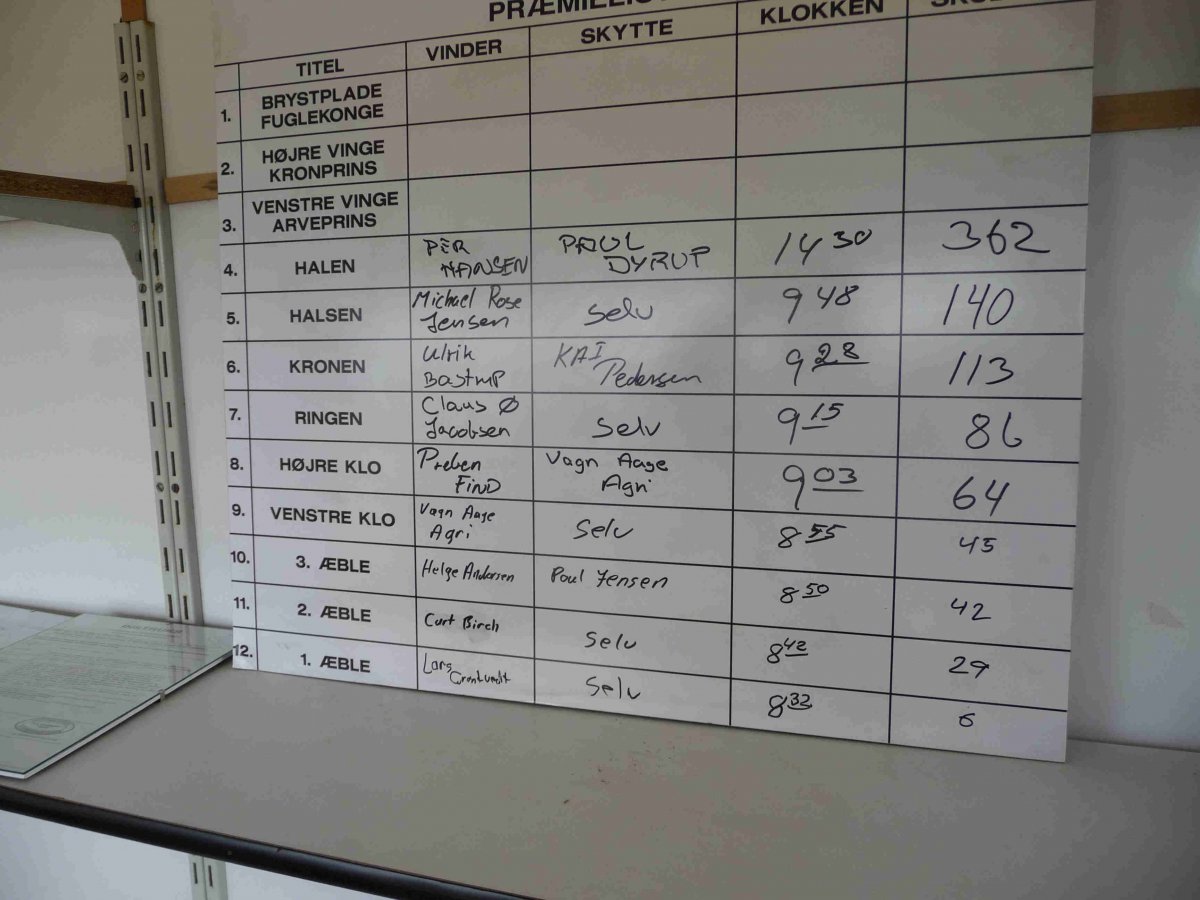 PRÆMIELIST
TITEL VINDER SKYTTE KLOKKEN
1. BRYSTPLADE
FUGLEKONGE
2. HØJRE VINGE
KRONPRINS
3. VENSTRE VINGE
ARVEPRINS
4. HALEN PER HANSEN POUL DYRUP 14 30 362
5. HALSEN Michael Rose Jensen Selv 9 48 140
6. KRONEN Ulrik Bastrup KAI Pedersen 9 28 113
7. RINGEN Claus Ø Jacobsen Selv 9 15 86
8. HØJRE KLO Preben FIND Vagn Aage Agri 9 03 64
9. VENSTRE KLO Vagn Aage Agri Selv 8 55 45
10. 3. ÆBLE Helge Andersen Poul Jensen 8 50 42
11. 2. ÆBLE Curt Birch Selv 8 42 29
12. 1. ÆBLE Lars Selv 8 32 6